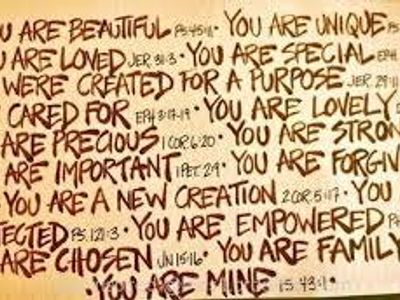 U ARE BEAUTIFUL PS. 45:11 • YOU ARE UNIQUE PS
U ARE LOVED JER. 31:3 • YOU ARE SPECIAL EPH
WERE CREATED FOR A PURPOSE JER. 29:11
CARED FOR EPH 3:17-19 • YOU ARE LOVELY
ARE PRECIOUS 1 COR. 6:20 • YOU ARE STRON
ARE IMPORTANT 1 PET. 2:9 • YOU ARE FORGIV
YOU ARE A NEW CREATION 2 COR. 5:17 • YOU
TECTED PS. 121:3 • YOU ARE EMPOWERED
ARE CHOSEN JN 15:16 • YOU ARE FAMILY
• YOU ARE MINE IS. 43:1 •